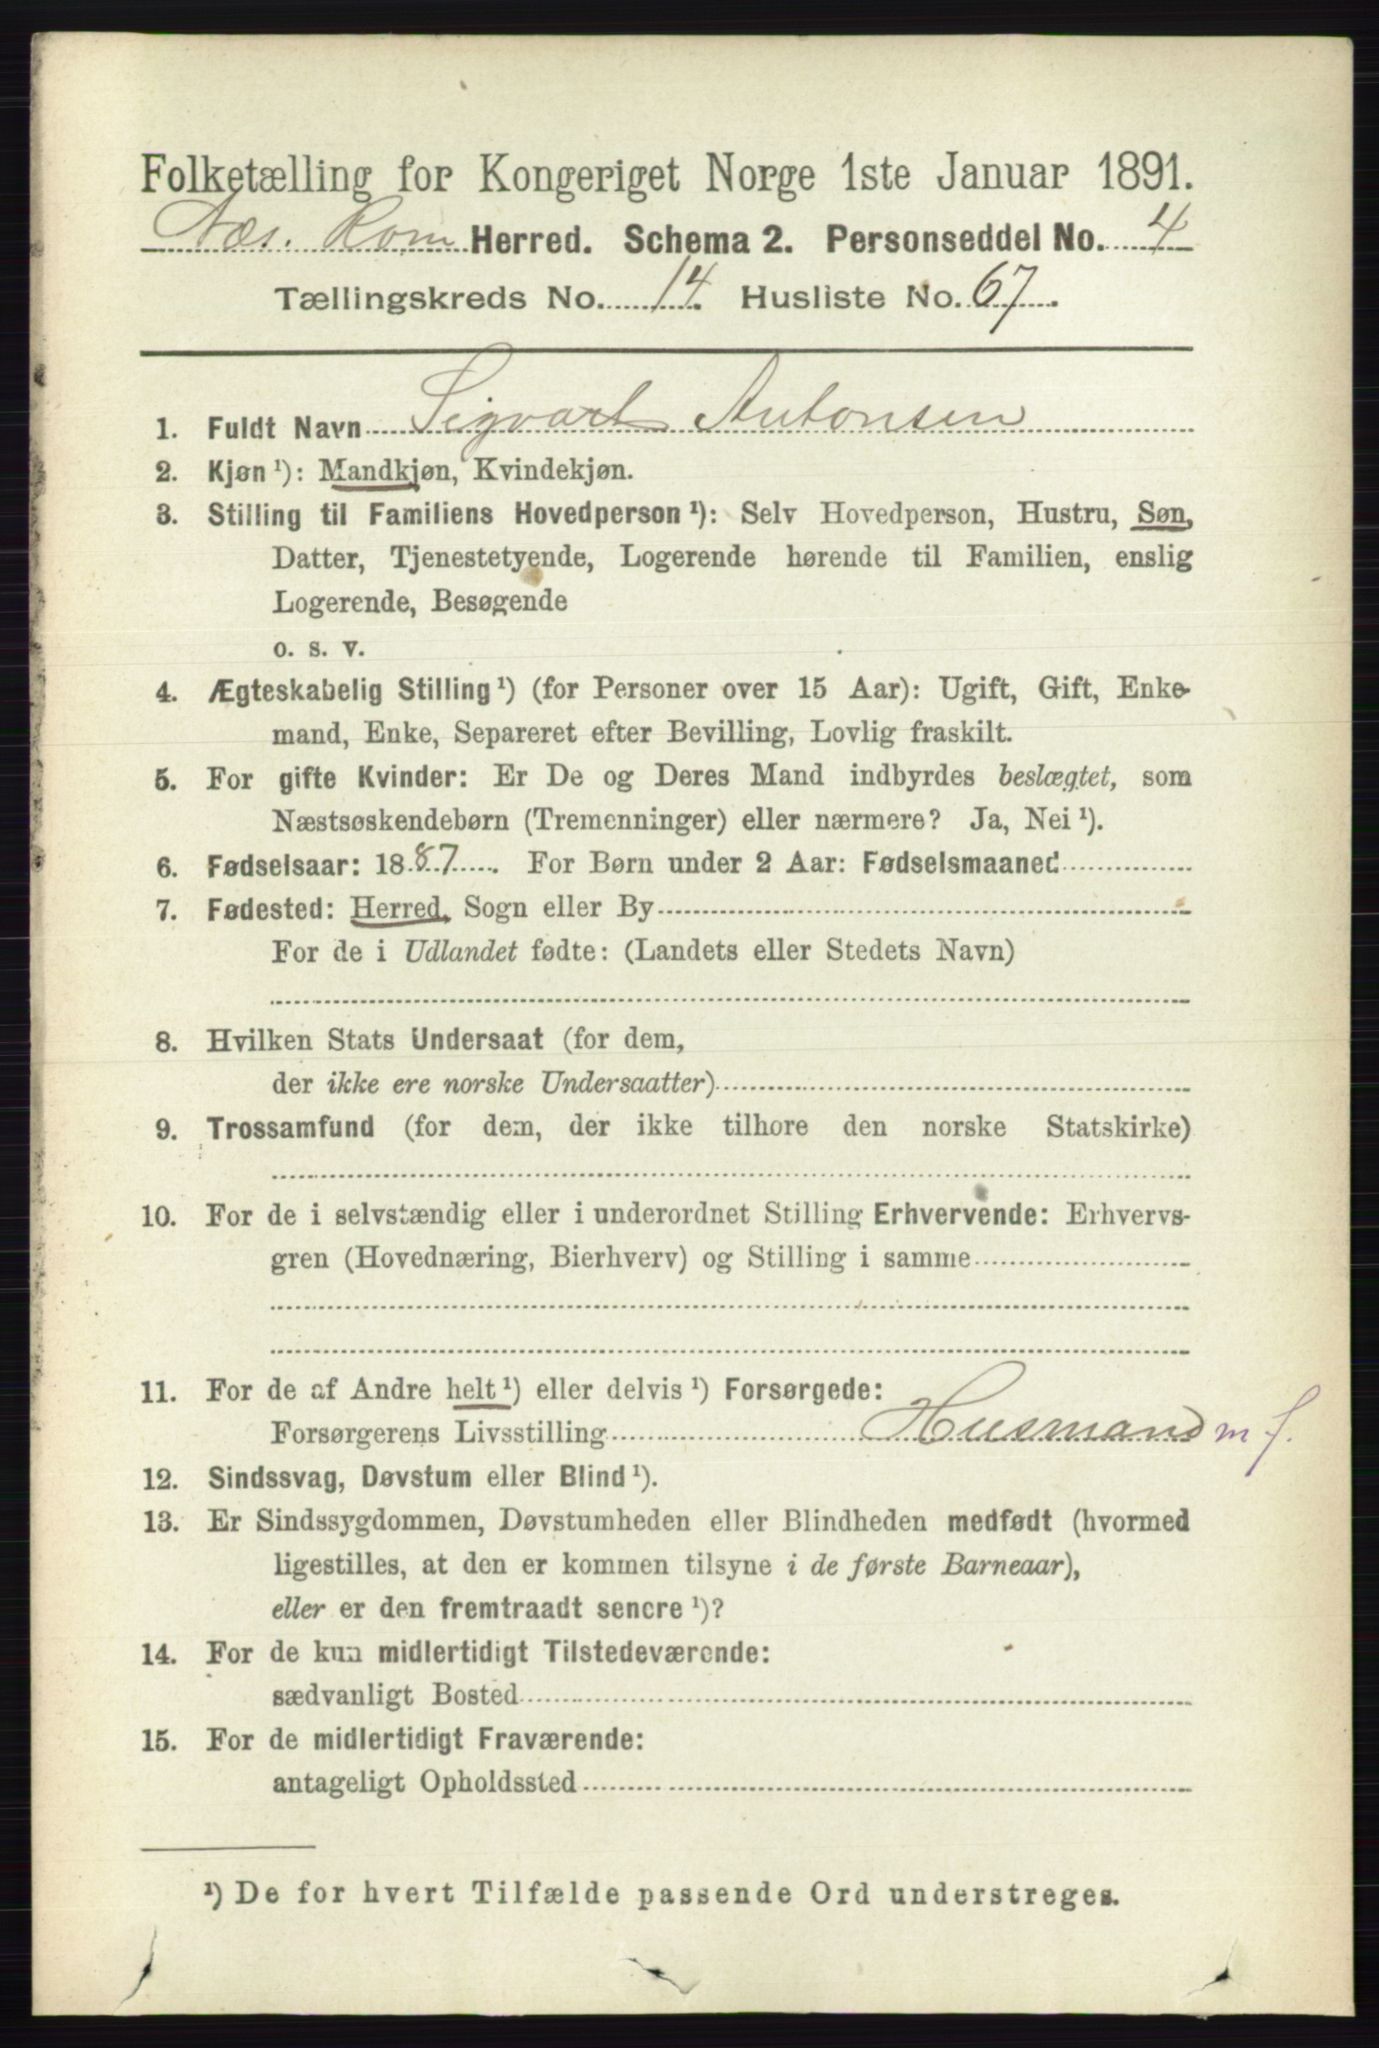 Folketælling for Kongeriget Norge 1ste Januar 1891.
Næs. Rom Herred. Schema 2. Personseddel No. 4
Tællingskreds No. 14. Husliste No. 67.
1. Fuldt Navn Sigvart Antonsen
2. Kjøn ¹): Mandkjøn, Kvindekjøn.
3. Stilling til Familiens Hovedperson ¹): Selv Hovedperson, Hustru, Søn,
Datter, Tjenestetyende, Logerende hørende til Familien, enslig
Logerende, Besøgende
o. s. v.
4. Ægteskabelig Stilling ¹) (for Personer over 15 Aar): Ugift, Gift, Enke-
mand, Enke, Separeret efter Bevilling, Lovlig fraskilt.
5. For gifte Kvinder: Er De og Deres Mand indbyrdes beslægtet, som
Næstsøskendebørn (Tremenninger) eller nærmere? Ja, Nei ¹).
6. Fødselsaar: 1887. For Børn under 2 Aar: Fødselsmaaned
7. Fødested: Herred, Sogn eller By
For de i Udlandet fødte: (Landets eller Stedets Navn)
8. Hvilken Stats Undersaat (for dem,
der ikke ere norske Undersaatter)
9. Trossamfund (for dem, der ikke tilhore den norske Statskirke)
10. For de i selvstændig eller i underordnet Stilling Erhvervende: Erhvervs-
gren (Hovednæring, Bierhverv) og Stilling i samme
11. For de af Andre helt ¹) eller delvis ¹) Forsørgede:
Forsørgerens Livsstilling Husmand m f.
12. Sindssvag, Døvstum eller Blind ¹).
13. Er Sindssygdommen, Døvstumheden eller Blindheden medfødt (hvormed
ligestilles, at den er kommen tilsyne i de første Barneaar),
eller er den fremtraadt senere ¹)?
14. For de kun midlertidigt Tilstedeværende:
sædvanligt Bosted
15. For de midlertidigt Fraværende:
antageligt Opholdssted
¹) De for hvert Tilfælde passende Ord understreges.